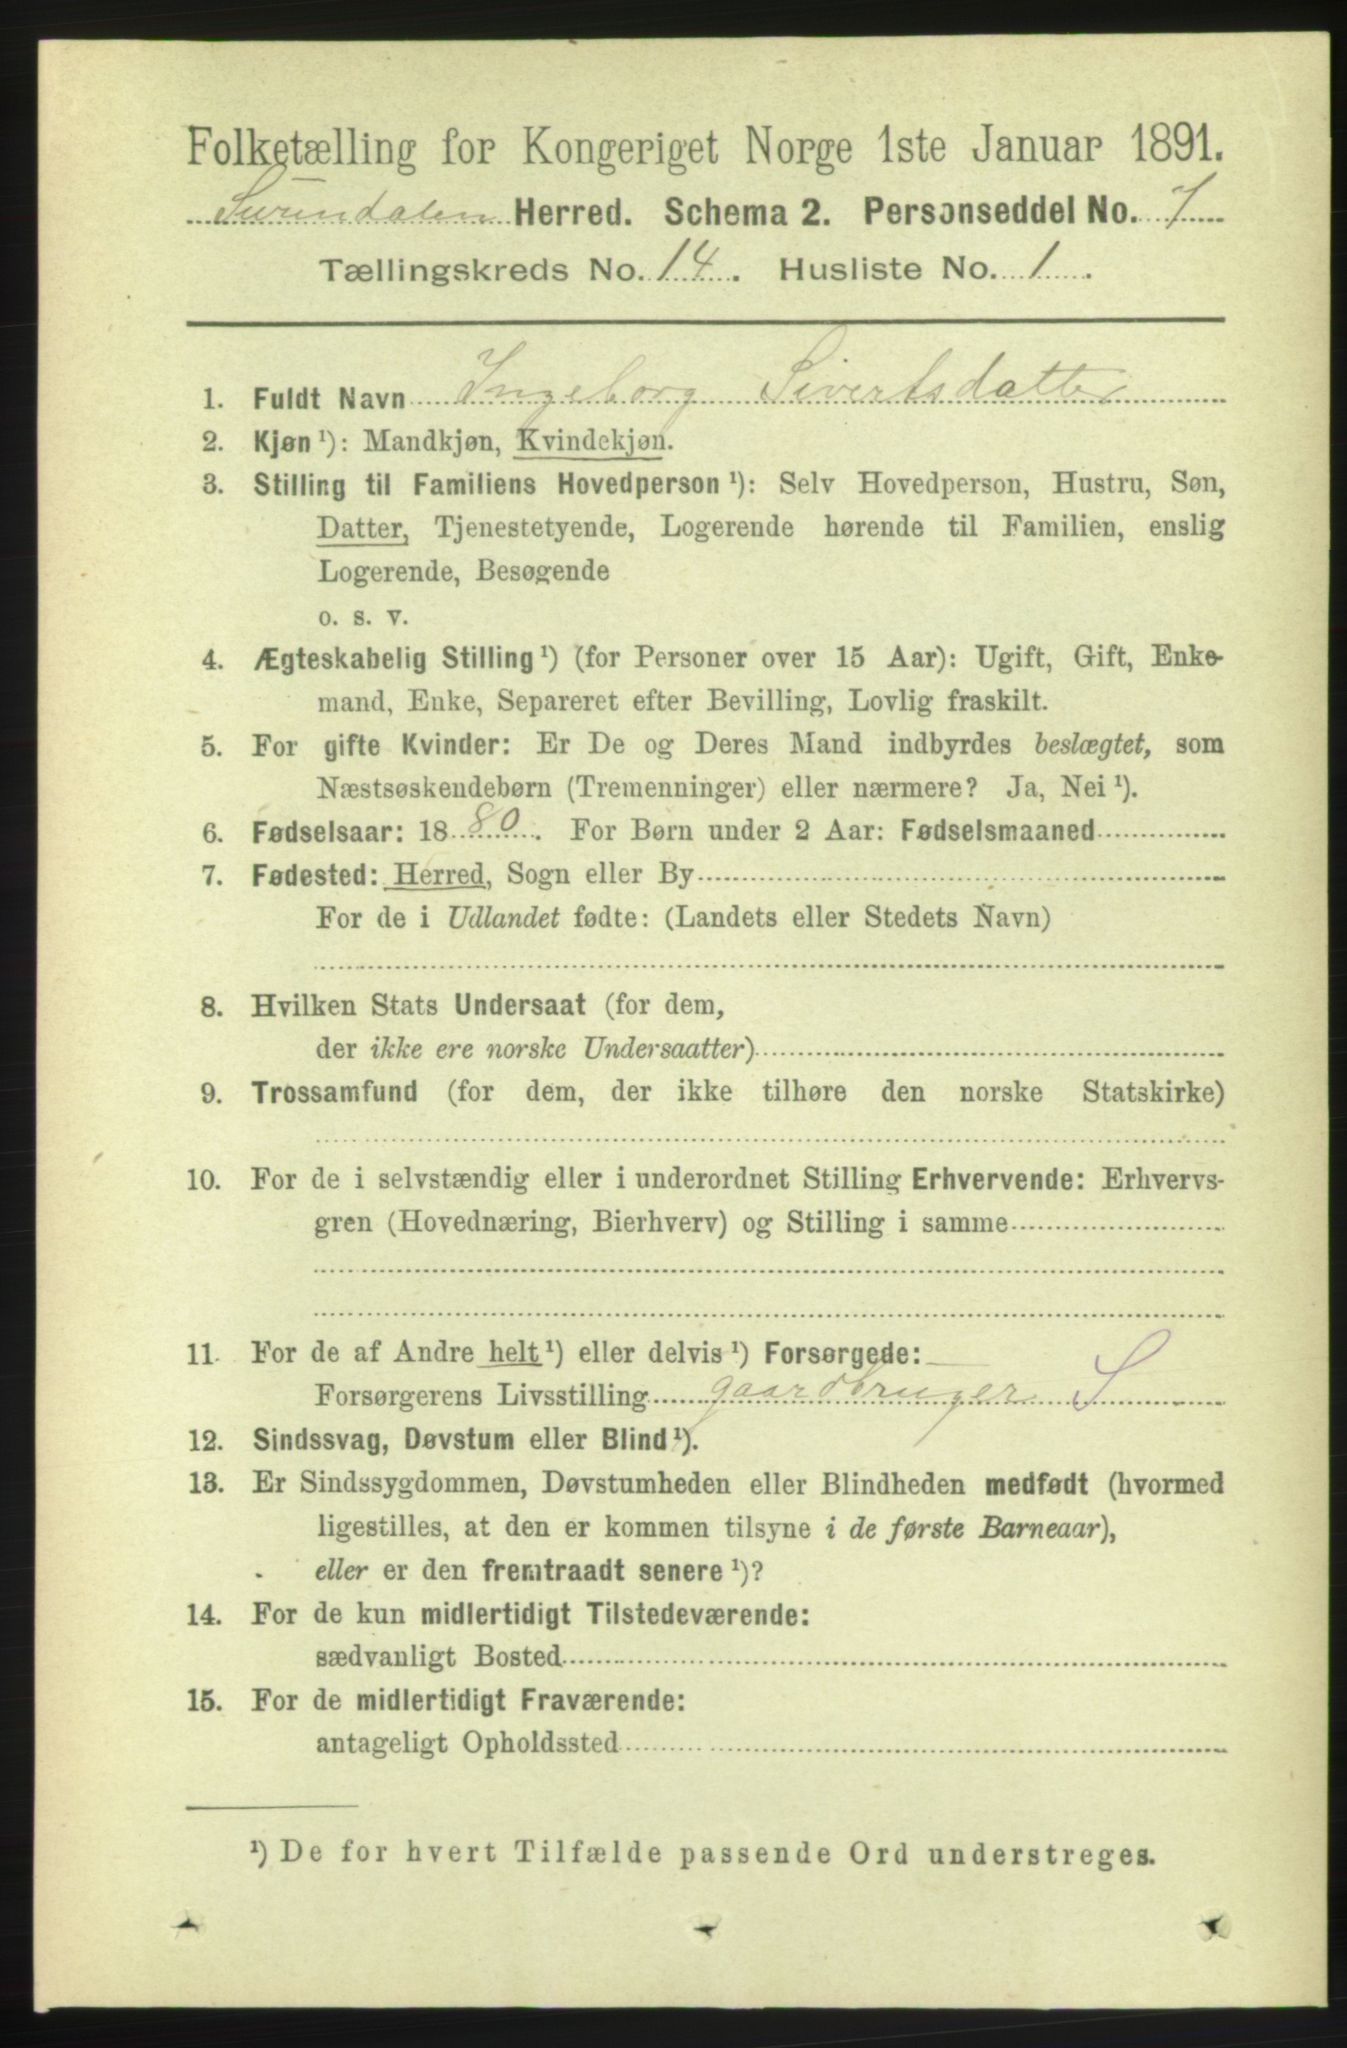 Folketælling for Kongeriget Norge 1ste Januar 1891.
Surendalen Herred. Schema 2. Personseddel No. 7
Tællingskreds No. 14. Husliste No. 1.
1. Fuldt Navn Ingeborg Sivertsdatter
2. Kjøn ¹): Mandkjøn, Kvindekjøn.
3. Stilling til Familiens Hovedperson ¹): Selv Hovedperson, Hustru, Søn,
Datter, Tjenestetyende, Logerende hørende til Familien, enslig
Logerende, Besøgende
o. s. v.
4. Ægteskabelig Stilling ¹) (for Personer over 15 Aar): Ugift, Gift, Enke-
mand, Enke, Separeret efter Bevilling, Lovlig fraskilt.
5. For gifte Kvinder: Er De og Deres Mand indbyrdes beslægtet, som
Næstsøskendebørn (Tremenninger) eller nærmere? Ja, Nei ¹).
6. Fødselsaar: 1880. For Børn under 2 Aar: Fødselsmaaned
7. Fødested: Herred, Sogn eller By
For de i Udlandet fødte: (Landets eller Stedets Navn)
8. Hvilken Stats Undersaat (for dem,
der ikke ere norske Undersaatter)
9. Trossamfund (for dem, der ikke tilhøre den norske Statskirke)
10. For de i selvstændig eller i underordnet Stilling Erhvervende: Erhvervs-
gren (Hovednæring, Bierhverv) og Stilling i samme
11. For de af Andre helt ¹) eller delvis ¹) Forsørgede:
Forsørgerens Livsstilling gaardbruger S
12. Sindssvag, Døvstum eller Blind ¹).
13. Er Sindssygdommen, Døvstumheden eller Blindheden medfødt (hvormed
ligestilles, at den er kommen tilsyne i de første Barneaar),
eller er den fremtraadt senere ¹)?
14. For de kun midlertidigt Tilstedeværende:
sædvanligt Bosted
15. For de midlertidigt Fraværende:
antageligt Opholdssted
¹) De for hvert Tilfælde passende Ord understreges.